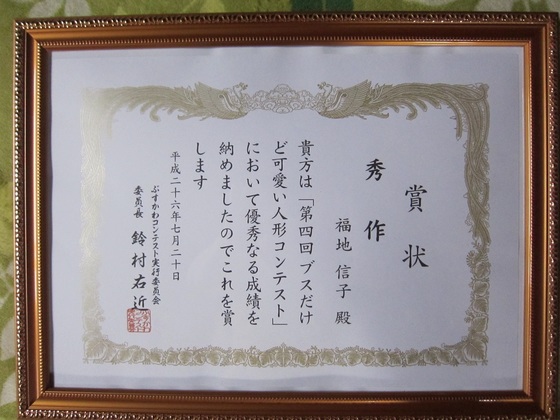 賞状
秀作
福地信子殿
貴方は「第四回ブスだけ
ど可愛い人形コンテスト」
において優秀なる成績を
納めましたのでこれを賞
します
平成二十六年七月二十日
ぶすかわコンテスト実行委員会
委員長 鈴村右近